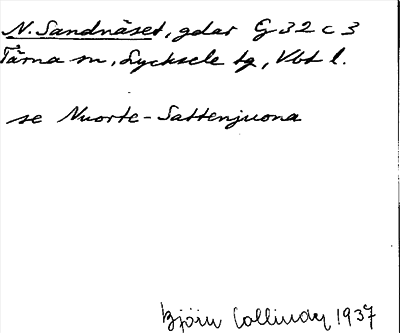 N. Sandnäset, gdar G 32 c 3
Tärna sn, Lycksele tg, Vbt l.
se Nuorte-Sattenjuona
Björn Collinder 1937